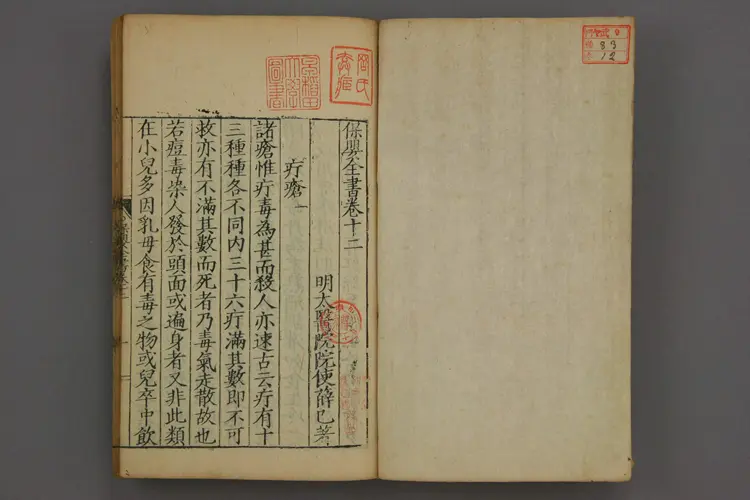 保嬰全書卷十二
明太醫院院使薛己著
疔瘡一
諸瘡惟疔毒為甚而殺人亦速古云疔有十
三種種各不同内三十六疔滿其數即不可
救亦有不滿其數而死者乃毒氣走散故也
若痘毒染人發於頭面或遍身者又非此類
在小兒多因乳母食有毒之物或兒卒中飲
早稲田大學圖書
33
12